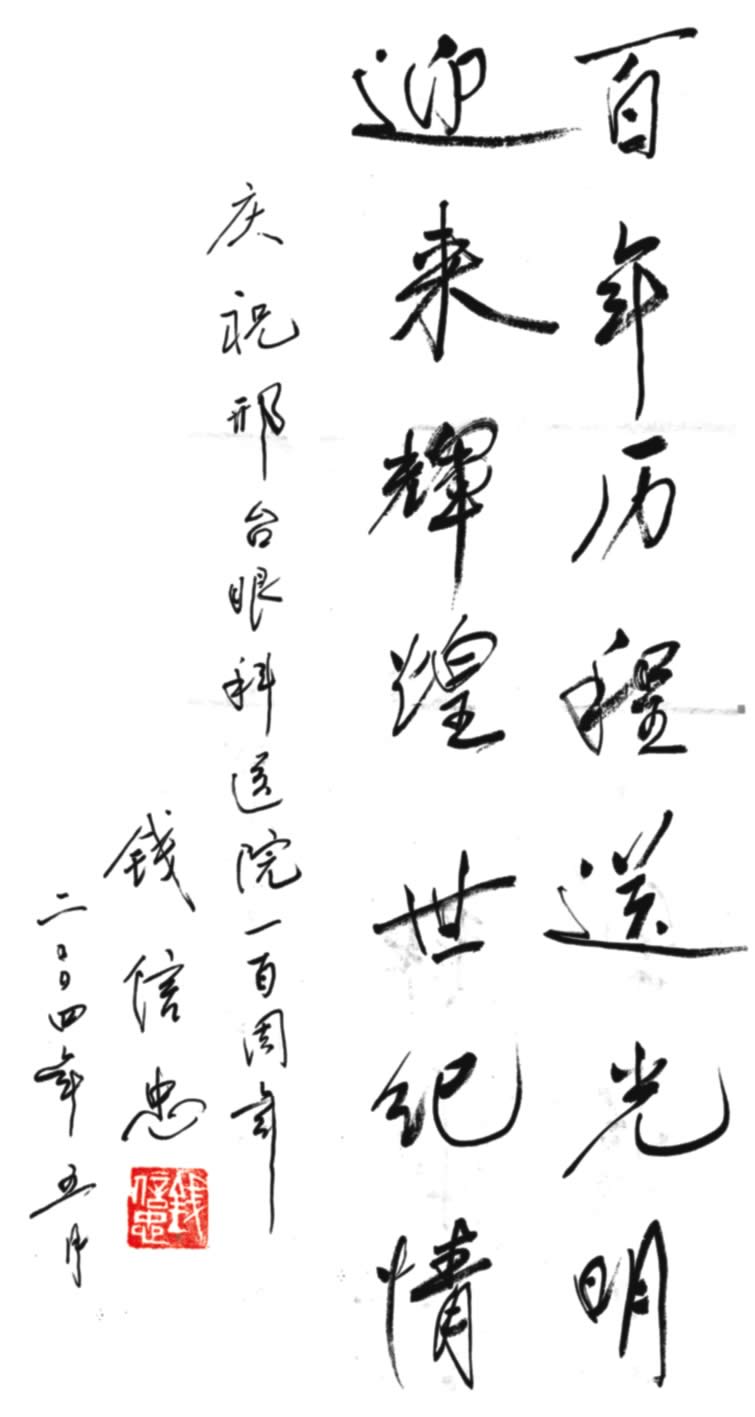 百年历程送光明
迎来辉煌世纪情
庆祝邢台眼科医院一百周年
钱信忠
二〇〇四年五月
钱信忠